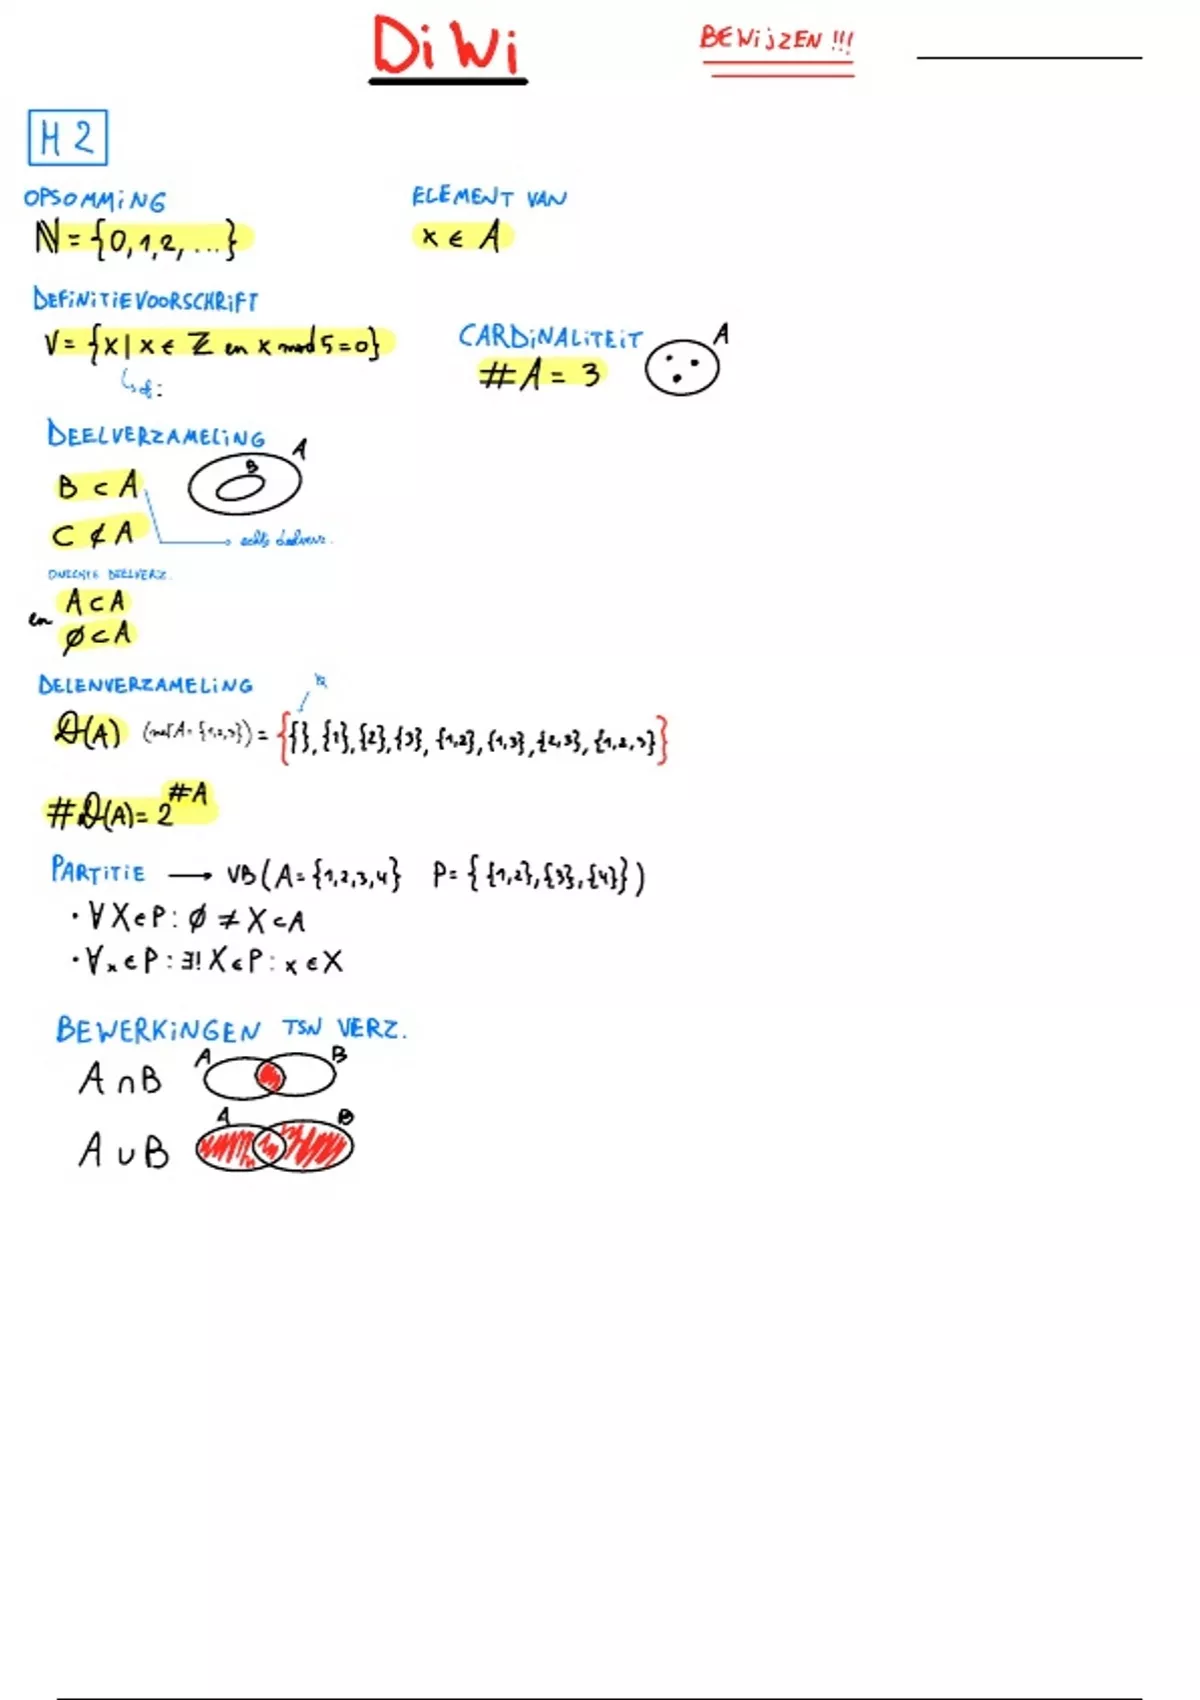 DiWi
BEWijZEN !!!
H 2
OPSOMMiNG
ℕ = {0, 1, 2, ...}
ELEMENT VAN
x ∈ A
DEFiNiTiEVOORSCHRiFT
V = {x | x ∈ ℤ en x mod 5 = 0}
↳ of :
CARDiNALiTEiT
#A = 3
A
DEELVERZAMELiNG
A
B
B ⊂ A
C ⊄ A
echte deelverz.
ONECHTE DEELVERZ.
A ⊂ A
en
∅ ⊂ A
DELENVERZAMELiNG
𝒟(A) (met A = {1,2,3}) = {{}, {1}, {2}, {3}, {1,2}, {1,3}, {2,3}, {1,2,3}}
#𝒟(A) = 2^#A
PARTiTiE → VB (A = {1,2,3,4} P = {{1,2}, {3}, {4}})
• ∀X ∈ P : ∅ ≠ X ⊂ A
• ∀x ∈ P : ∃! X ∈ P : x ∈ X
BEWERKiNGEN TSN VERZ.
A ∩ B
A B
A ∪ B
A B